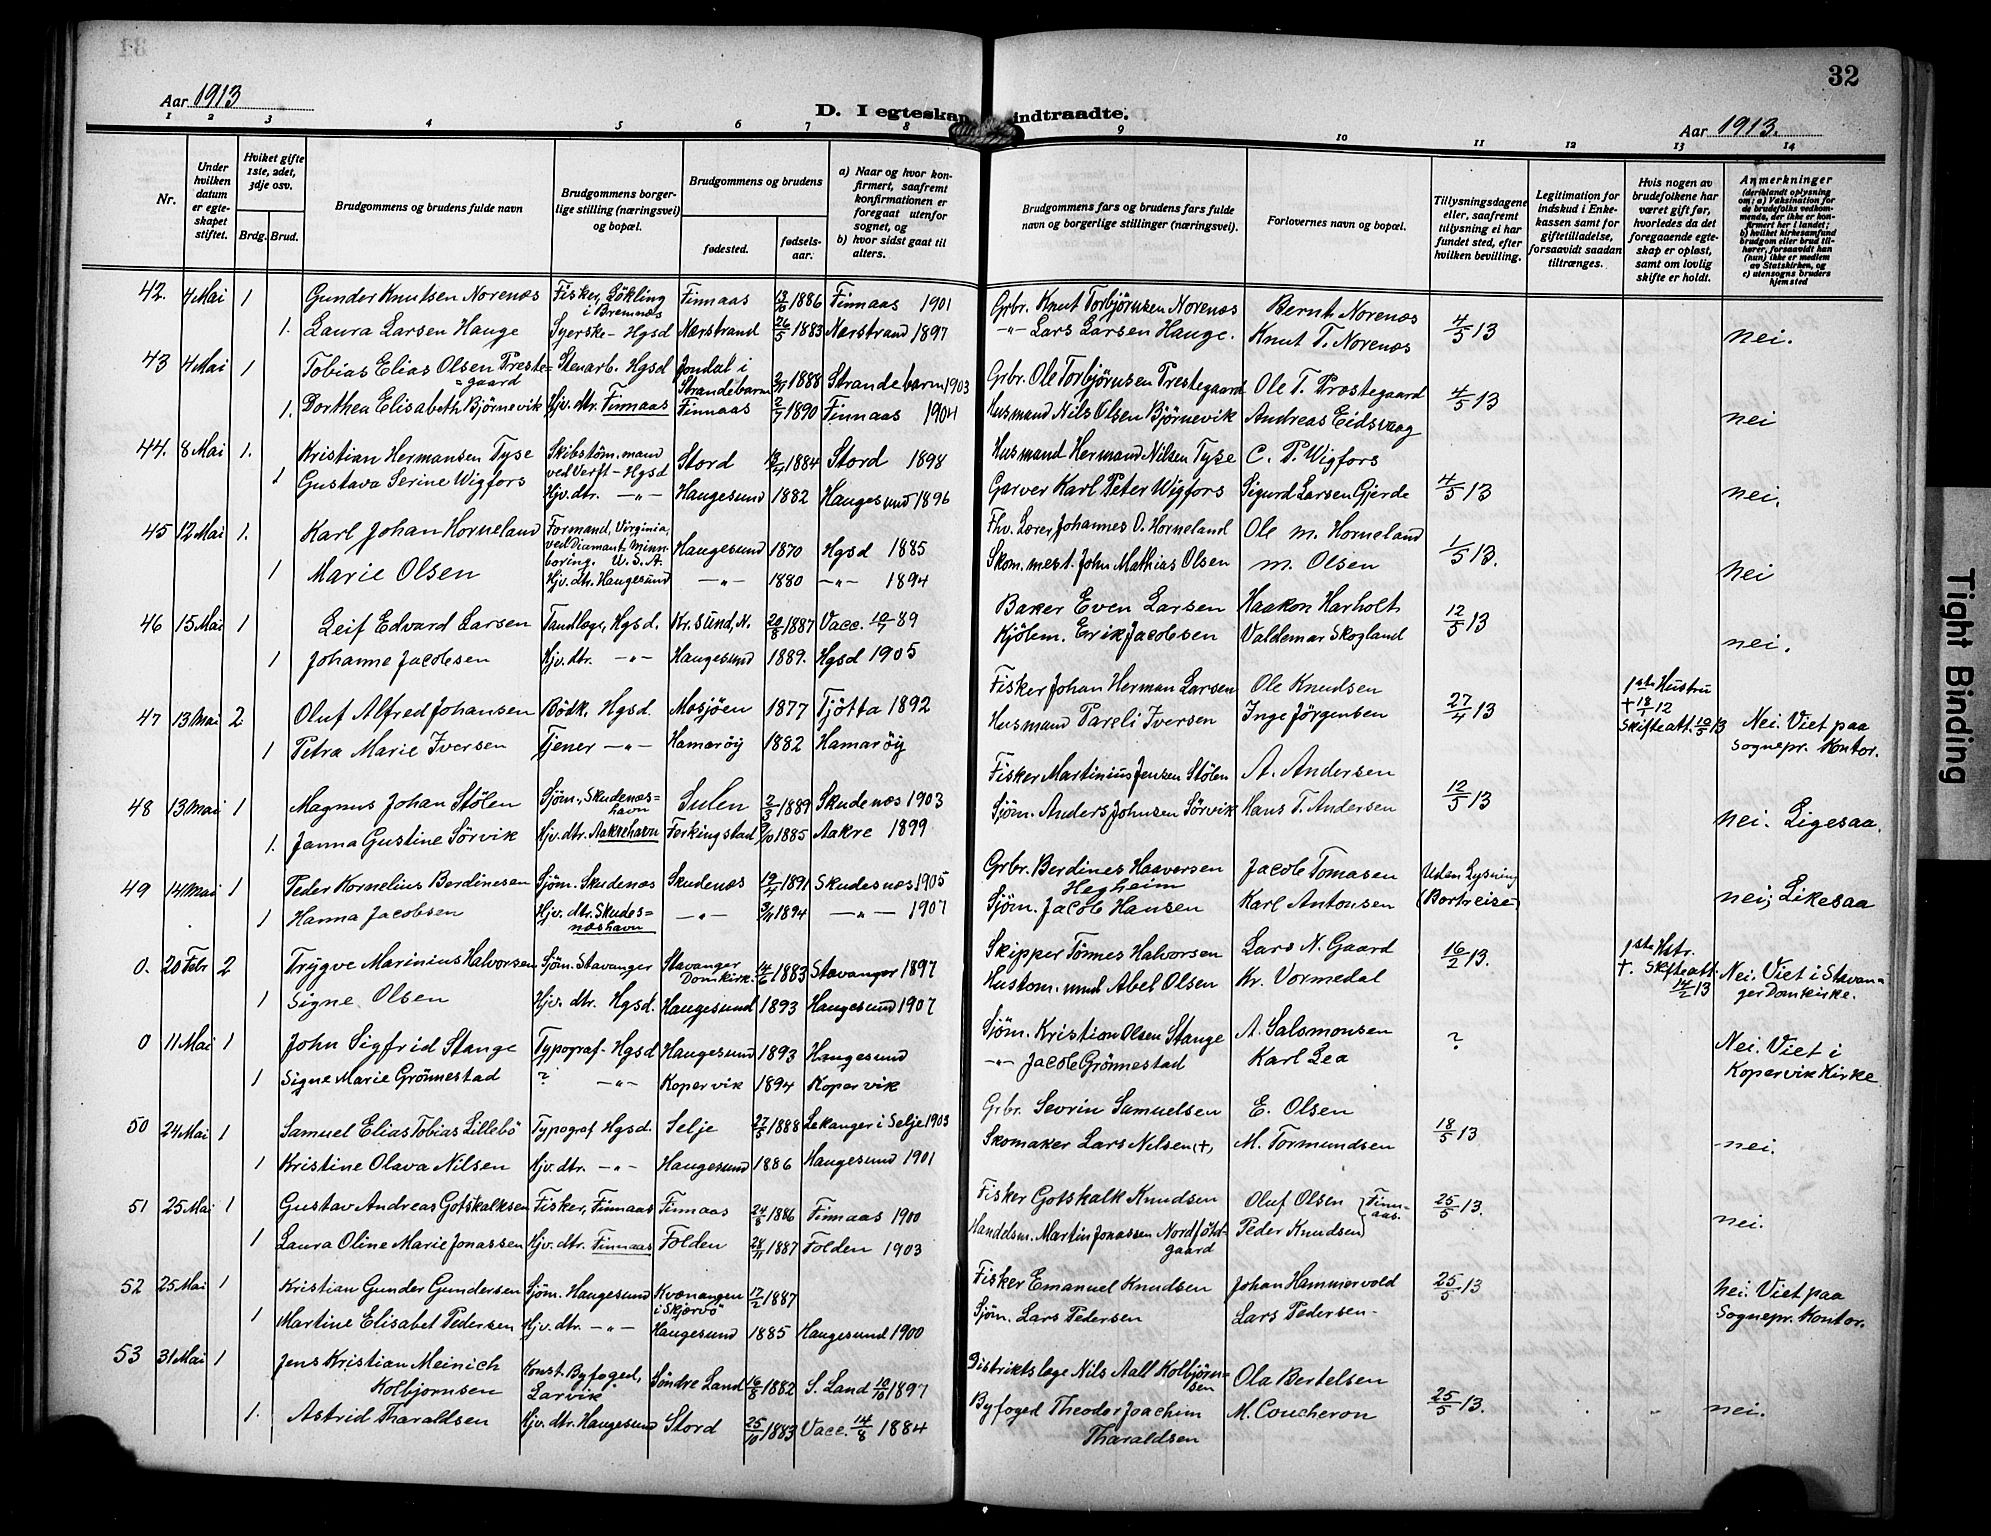 32
Aar 1913
D. I egteskap indtraadte.
Aar 1913.
1 2 3 4 5 6 7 8 9 10 11 12 13 14
Nr.
Under hvilken datum er egteskapet stiftet.
Hvilket gifte 1ste, 2det, 3dje osv.
Brdg. Brud.
Brudgommens og brudens fulde navn
Brudgommens borgerlige stilling (næringsvei) og bopæl.
Brudgommens og brudens
fødested.
fødselsaar.
a) Naar og hvor konfirmert, saafremt konfirmationen er foregaat utenfor sognet, og
b) hvor sidst gaat til alters.
Brudgommens fars og brudens fars fulde navn og borgerlige stillinger (næringsvei).
Forlovernes navn og bopæl.
Tillysningsdagene eller, saafremt tillysning ei har fundet sted, efter hvilken bevilling.
Legitimation for indskud i Enkekassen samt for giftetilladelse, forsaavidt saadan tiltrænges.
Hvis nogen av brudefolkene har været gift før, hvorledes da det foregaaende egteskap er opløst, samt om lovlig skifte er holdt.
Anmerkninger
(deriblandt oplysning om: a) Vaksination for de brudefolks vedkommende, der ikke er konfirmert her i landet; b) hvilket kirkesamfund brudgom eller brud tilhører, forsaavidt han (hun) ikke er medlem av Statskirken, og c) utensogns bruders hjemsted
42. 4 Mai 1 Gunder Knutsen Norenæs Fisker, Lökling i Bremnæs Finnaas 13/10 1886 Finnaas 1901 Grbr. Knut Torbjörnsen Norenæs Bernt Norenæs 4/5 13 nei.
1. Laura Larsen Hauge Syerske - Hgsd Nærstrand 26/5 1883 Nærstrand 1897 -"- Lars Larsen Hauge. Knut T. Norenæs
43 4 Mai 1 Tobias Elias Olsen Prestegaard Stenarb. Hgsd Jondal i Strandebarm 1888 Strandebarm 1903 Grbr. Ole Torbjørnsen Prestegaard Ole T. Prostegaard 4/5 13 nei
1. Dorthea Elisabeth Bjørnevik Hjv. dtr. Finnaas Finnaas 2/7 1890 Finnaas 1904 Husmand Nils Olsen Bjørnevik Andreas Eidsvaag
44. 8 Mai 1. Kristian Hermansen Tyse Skibstøm.mand ved Verft - Hgsd Stord 1884 Stord 1898 Husmand Hermand Nilsen Tyse C. P. Wigfors 4/5 13 nei.
1 Gustava Serine Wigfors Hjv. dtr. -"- Haugesund 1882 Haugesund 1896 Garver Karl Peter Wigfors Sigurd Larsen Gjerde
45 12 Mai 1. Karl Johan Horneland Formand, Virginia, ved Diamant Minnboring. U.S.A. Haugesund 1870 Hgsd 1885 Fhv. Lærer Johannes O. Horneland Ole M. Horneland 1/5 13. nei
1 Marie Olsen Hjv. dtr. Haugesund -"- 1880 -"- 1894 Skom.mest. John Mathias Olsen M. Olsen
46 15 Mai 1 Leif Edvard Larsen Tandlæge, Hgsd. Kr. sund, N. 20/8 1887 Vacc. 10/7 89 Baker Even Larsen Haakon Harholt 12/5 13 nei.
1 Johanne Jacobsen Hjv. dtr. -"- Haugesund 1889. Hgsd 1905 Kjølem. Erik Jacobsen Valdemar Skogland
47 13 Mai 2 Oluf Alfred Johansen Bödk. Hgsd. Mosjöen 1877 Tjötta 1892 Fisker Johan Herman Larsen Ole Knudsen 27/4 13 1ste Hustru † 18/1 12 Skifteatt. 10/5 13 Nei. Viet paa sognepr. Kontor.
1 Petra Marie Iversen Tjener -"- Hamarøy 1882 Hamarøy Husmand Pareli Iversen Inge Jörgensen
48 13 Mai 1 Magnus Johan Stölen Sjøm. Skudenæshavn Sulen 2/3 1889 Skudenæs 1903 Fisker Martinius Jensen Stölen A. Andersen 12/5 13 nei. Ligesaa.
1. Janna Gustine Sörvik Hjv. dtr. Aakrehavn Ferkingstad 1885 Aakre 1899 Sjøm. Anders Johnsen Sörvik Hans T. Andersen
49 14 Mai 1 Peder Kornelius Berdinesen Sjøm. Skudenæs Skudenæs 19/4 1891 Skudesnæs 1905 Grbr. Berdines Haaversen Hegheim Jacob Tomasen Uden Lysning (Bortreise) nei; Likesaa
1 Hanna Jacobsen Hjv. dtr. Skudesnæshavn -"- 3/11 1894 -"- 1907 Sjøm. Jacob Hansen Karl Antonsen
0. 20 Febr 2 Trygve Marinius Halvorsen Sjøm. Stavanger Stavanger Domkirk. 14/6 1883 Stavanger 1897 Skipper Tönnes Halvorsen Lars N. Gaard 16/2 13. 1ste Hstr. †. Skifteatt. 14/2 13 Nei. Viet i Stavanger Domkirke.
1 Signe Olsen Hjv. dtr. Hgsd. Haugesund 1893 Haugesund 1907 Hustøm.mand Abel Olsen Kr. Vormedal
0 11 Mai 1 John Sigfrid Stange Typograf - Hgsd Haugesund 1893 Haugesund Sjøm. Kristian Olsen Stange A. Salomonsen ? Nei. Viet i Kopervik Kirke
1 Signe Marie Grönnestad ? -"- Kopervik 1894 Kopervik -"- Jacob Grönnestad Karl Lea
50 24 Mai 1 Samuel Elias Tobias Lillebö Typograf Hgsd. Selje 27/5 1888 Lekanger i Selje 1903 Grbr. Sevrin Samuelsen E. Olsen 18/5 13 nei.
1 Kristine Olava Nilsen Hjv. dtr. -"- Haugesund 1886 Haugesund 1901 Skomaker Lars Nilsen (†) M. Tormundsen
51 25 Mai 1 Gustav Andreas Gotskalksen Fisker, Finnaas Finnaas 24/8 1886 Finnaas 1900 Fisker Gotskalk Knudsen Oluf Olsen } Finnaas. 25/5 13. nei.
1 Laura Oline Marie Jonassen Hjv. dtr. Finnaas Folden 28/11 1887 Folden 1903 Handelsm. Martin Jonassen Peder Knudsen
52 25 Mai 1 Kristian Gunder Gundersen Sjøm. Haugesund Kvænangen i Skjervö 17/2 1887 Fisker Emanuel Knudsen Johan Hammervold 25/5 13 nei. Viet paa Sognepr. Kontor.
1 Martine Elisabet Pedersen Hjv. dtr. -"- Haugesund 1885 Haugesund 1900 Sjøm. Lars Pedersen Lars Pedersen -
53 31 Mai 1 Jens Kristian Meinich Kolbjørnsen Konst. Byfoged, Larvik Söndre Land 16/8 1882 S. Land 10/10 1897 Distriktslæge Nils Aall Kolbjørnsen Ola Bertelsen 25/5 13. nei.
1. Astrid Tharaldsen Hjv. dtr. Haugesund Stord 25/10 1883 Vacc. 14/8 1884 Byfoged Theodor Joachim Tharaldsen M. Coucheron
Tight Binding